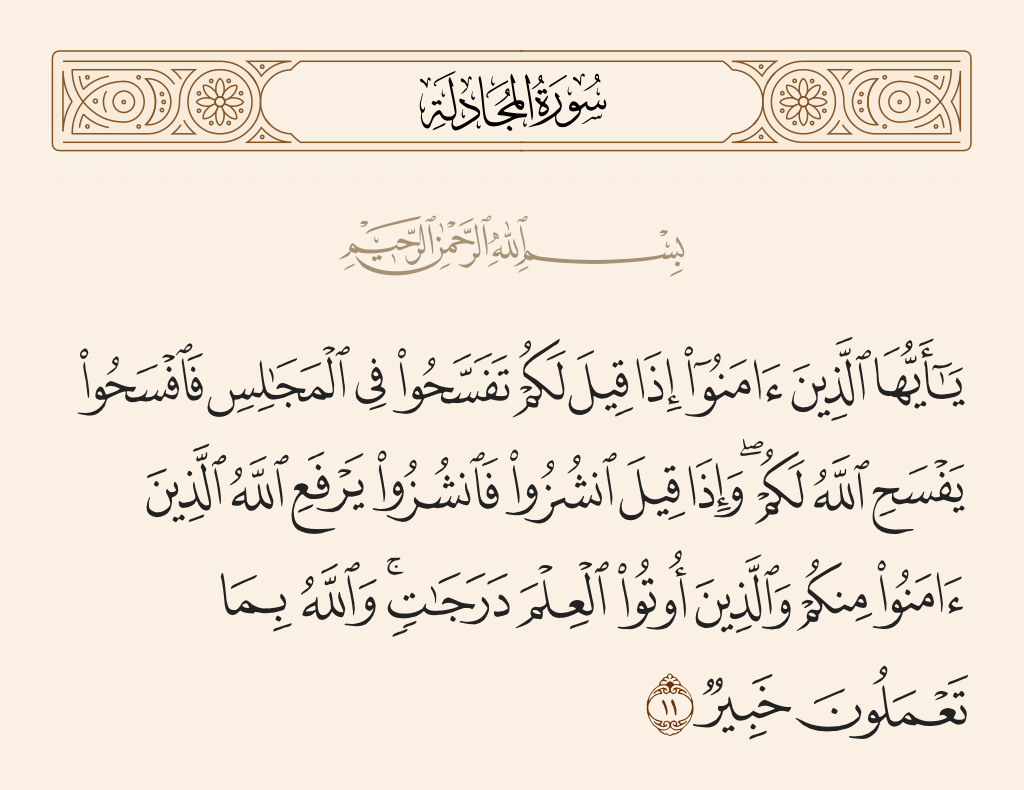 سُورَةُ المُجَادلَةِ
بِسْمِ ٱللَّهِ ٱلرَّحْمَٰنِ ٱلرَّحِيمِ
يَـٰٓأَيُّهَا ٱلَّذِينَ ءَامَنُوٓا۟ إِذَا قِيلَ لَكُمْ تَفَسَّحُوا۟ فِى ٱلْمَجَـٰلِسِ فَٱفْسَحُوا۟
يَفْسَحِ ٱللَّهُ لَكُمْ ۖ وَإِذَا قِيلَ ٱنشُزُوا۟ فَٱنشُزُوا۟ يَرْفَعِ ٱللَّهُ ٱلَّذِينَ
ءَامَنُوا۟ مِنكُمْ وَٱلَّذِينَ أُوتُوا۟ ٱلْعِلْمَ دَرَجَـٰتٍ ۚ وَٱللَّهُ بِمَا
تَعْمَلُونَ خَبِيرٌ ١١